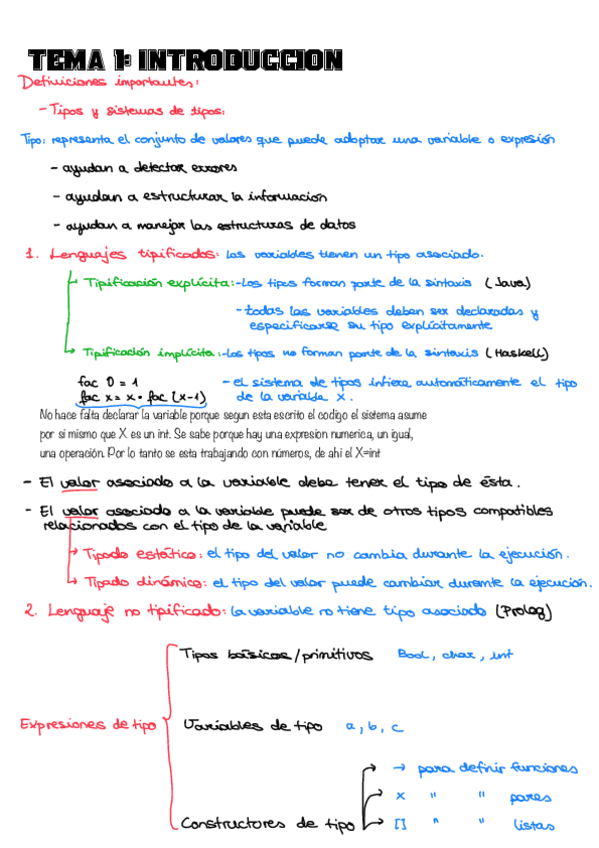 TEMA 1: INTRODUCCION
Definiciones importantes:
- Tipos y sistemas de tipos:
Tipo: representa el conjunto de valores que puede adoptar una variable o expresión
- ayudan a detectar errores
- ayudan a estructurar la información
- ayudan a manejar las estructuras de datos
1. Lenguajes tipificados: las variables tienen un tipo asociado.
Tipificación explícita: - Los tipos forman parte de la sintaxis (Java)
- todas las variables deben ser declaradas y
especificarse su tipo explícitamente
Tipificación implícita: - Los tipos no forman parte de la sintaxis (Haskell)
fac 0 = 1 - el sistema de tipos infiere automáticamente el tipo
fac x = x * fac (x-1) de la variable x.
No hace falta declarar la variable porque segun esta escrito el codigo el sistema asume
por si mismo que X es un int. Se sabe porque hay una expresion numerica, un igual,
una operación. Por lo tanto se esta trabajando con números, de ahi el X=int
- El valor asociado a la variable debe tener el tipo de ésta.
- El valor asociado a la variable puede ser de otros tipos compatibles
relacionados con el tipo de la variable
Tipado estático: el tipo del valor no cambia durante la ejecución.
Tipado dinámico: el tipo del valor puede cambiar durante la ejecución.
2. Lenguaje no tipificado: la variable no tiene tipo asociado (Prolog)
Tipos básicos/primitivos Bool, char, int
Expresiones de tipo Variables de tipo a, b, c
→ para definir funciones
x " " pares
Constructores de tipo [] " " listas